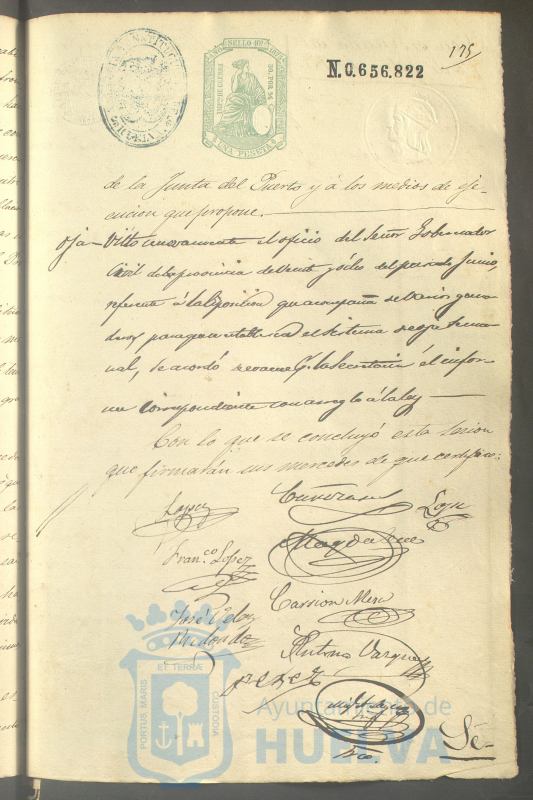 175
N.0.656.822
SELLO 10º
UNA PESETA
de la Junta del Puerto y á los medios de eje-
cucion que propone.
Visto nuevamente el oficio del Señor Gobernador
Civil de la provincia de veinte y ocho del pasado Junio,
referente á la esposicion que acompaña de varios gana-
deros para que se establezca el sistema
se acordó la Secretaría el infor-
me correspondiente con arreglo á la ley
Con lo que se concluyó esta sesion
que firmarán sus mercedes de que certifico:
Lopez
Franco. Lopez
Carrion
José
Redondo
Antonio Vazquez
Sê-
PORTUS MARIS
ET TERRÆ
CUSTODIA
Ayuntamiento de
HUELVA